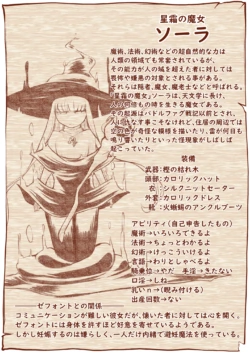 星霜の魔女
ソーラ
魔術、法術、幻術などの超自然的な力は
人類の領域でも常習されているが、
その能力が人の域を超えた者に対しては
畏怖や嫌悪の対象とされる事がある。
それらは隠者、魔女、魔老士などと呼ばれる。
「星霜の魔女」ソーラは、天文学に長け、
人の何倍もの時を生きる魔女である。
その起源はバドルファグ戦記以前とされ、
空の色が奇怪な模様を描いたり、雷が何日も
鳴り響いたりといった怪現象がしばしば
起こっていた。
装備
武器:樫の枯れ木
頭部:カロリックハット
衣:シルクニットセーター
外套:カロリックドレス
靴:火蜥蜴のアンクルブーツ
アビリティ(自己申告したもの)
魔術→いろいろできるよ
法術→ちょっとわかるよ
幻術→けっこういけるよ
言語→わりとしゃべるよ
騎乗位→やだ 手淫→きたない
口淫→しね
乳いn→(睨み付ける)
出産回数→ない
ゼフォントとの関係
コミュニケーションが難しい彼女だが、慎いた者に対しては心を開く。
ゼフォントには身体を許すほど好意を寄せているようである。
しかし妊娠するのは嫌らしく、一人だけ内緒で避妊魔法を使っている。